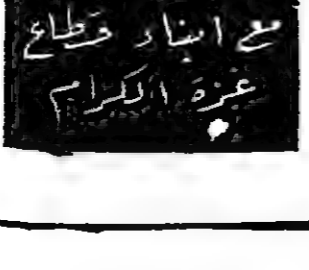 مع ابناء وقطاع
غزة الكرام